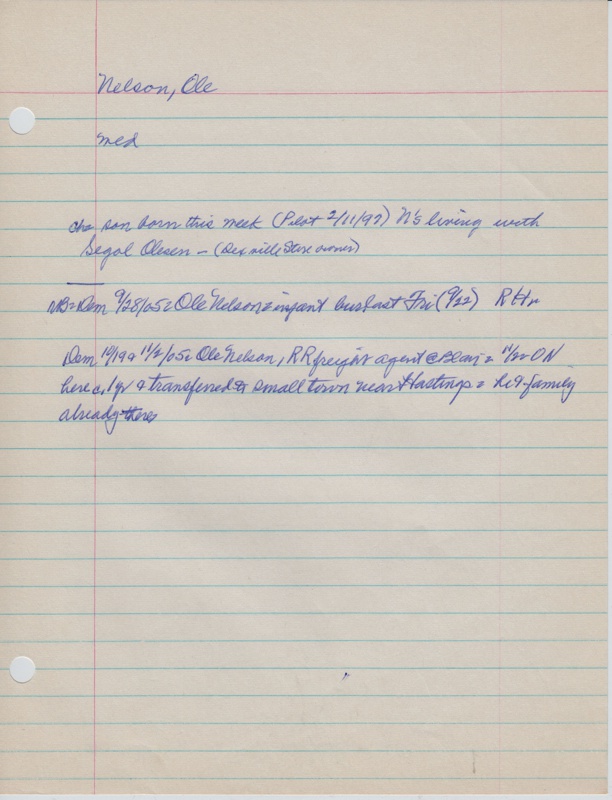 Nelson, Ole
med
son born this week (Pilot 2/11/97) N's living with
Segol Olesen - (Dexville Store owner)
NB= Dem 9/28/05: Ole Nelson infant bur last Fri (9/22)
Dem 10/19 & 11/2/05: Ole Nelson, RR freight agent @ Blair = 11/2 ON
here c. 1 yr & transferred to small town near Hastings = he & family
already there